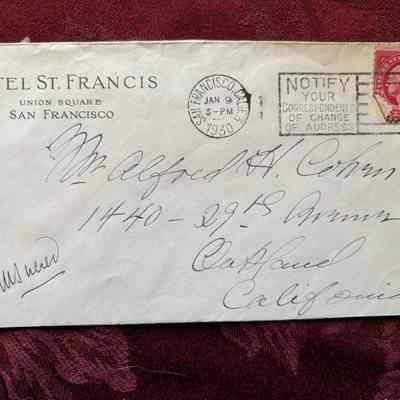 TEL ST. FRANCIS
UNION SQUARE
SAN FRANCISCO
SAN FRANCISCO, CALIF.
JAN 9
3-PM
1930
NOTIFY
YOUR
CORRESPONDENTS
OF CHANGE
OF ADDRESS
Mr Alfred H. Cohen
1440-29th Avenue
Oakland
California